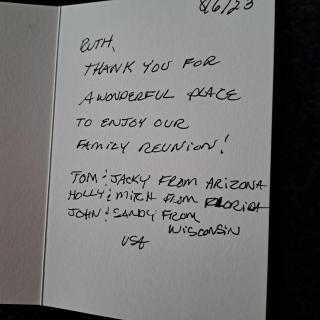 8/6/23
RUTH,
THANK YOU FOR
A WONDERFUL PLACE
TO ENJOY OUR
FAMILY REUNION!
TOM & JACKY FROM ARIZONA
HOLLY & MITCH FROM FLORIDA
JOHN & SANDY FROM
WISCONSIN
USA